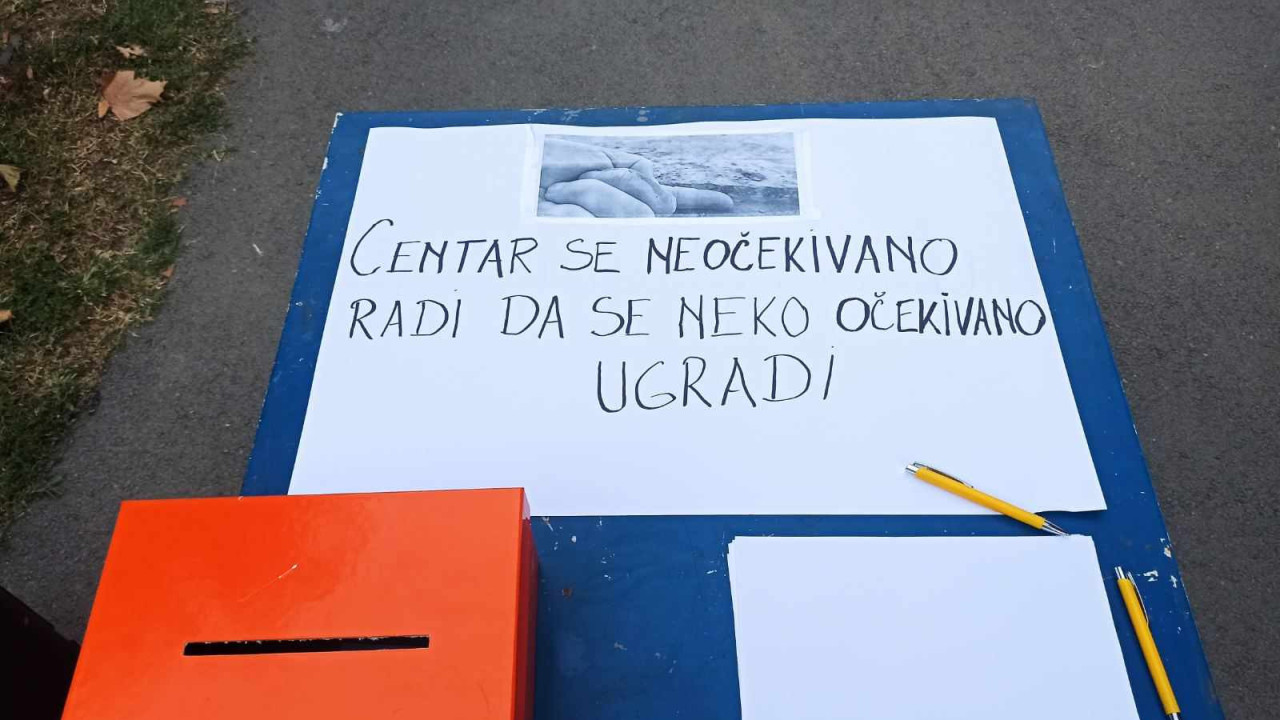 CENTAR SE NEOČEKIVANO
RADI DA SE NEKO OČEKIVANO
UGRADI